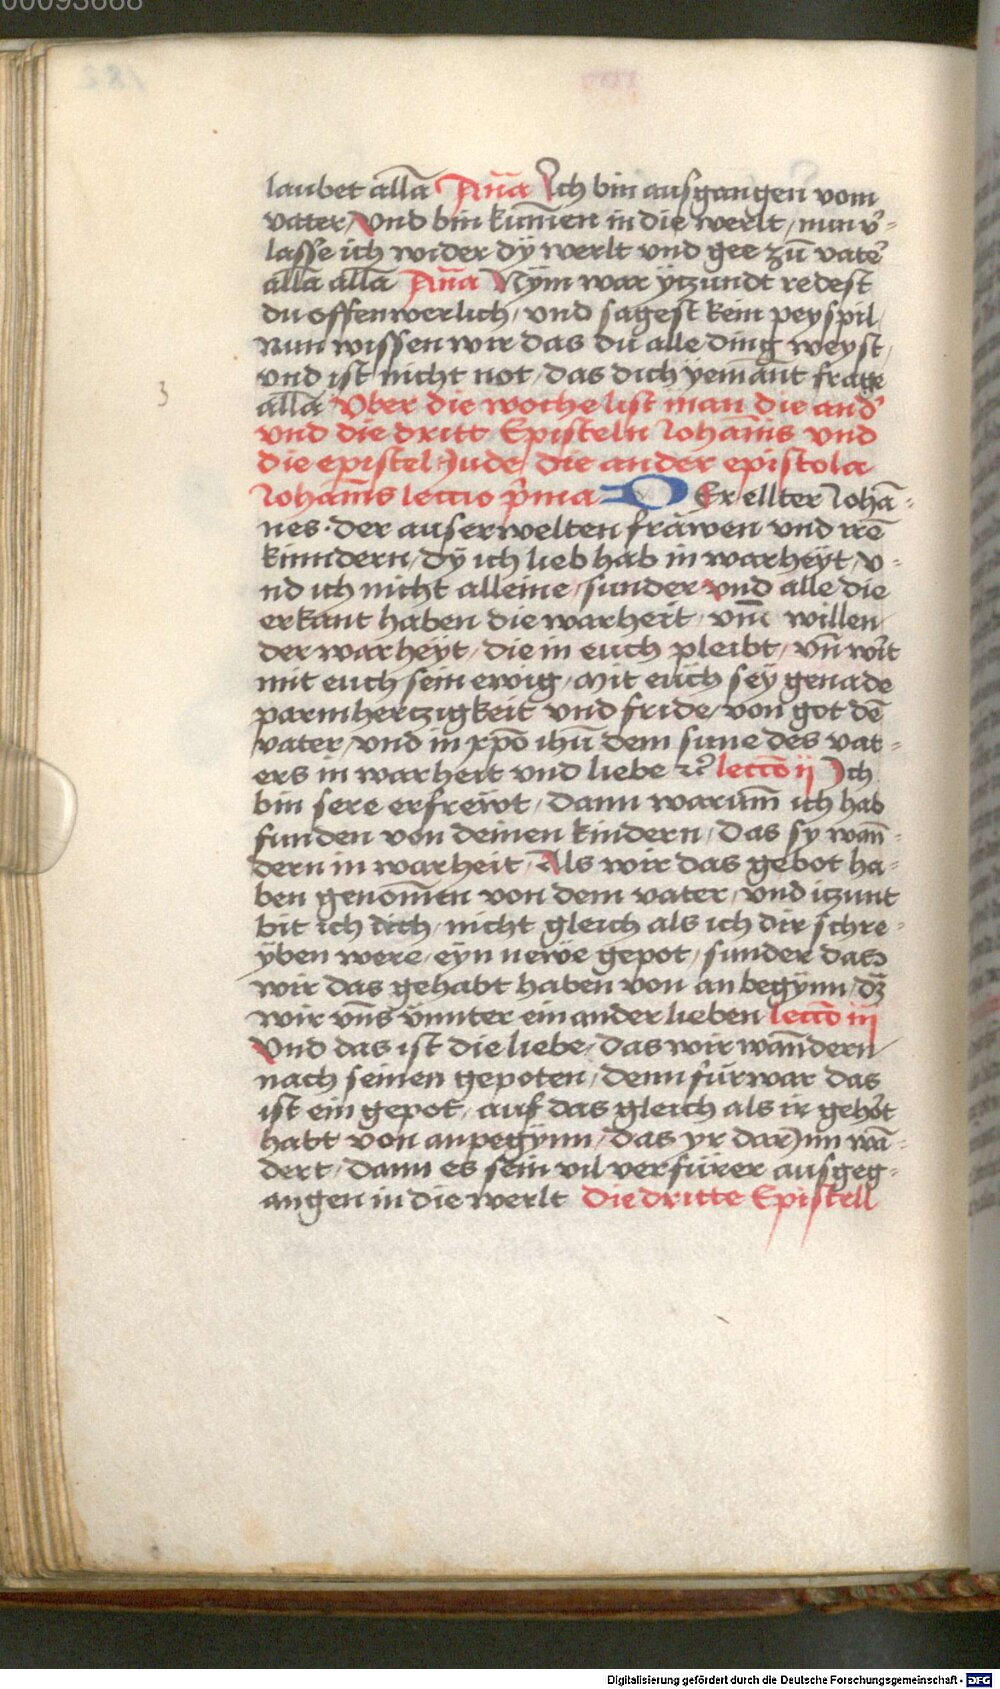 00093668
laubet all̄a An̄a Ich bin ausgangen vom
vater / vnd bin kum̄en in die werlt / nun v̾-
lasse ich wider dÿ werlt vnd gee zū vate᷑
all̄a all̄a An̄a Nÿm war ÿtzundt redest
du offenwerlich / vnd sagest kein peyspil /
Nun wissen wir das du alle ding weyst /
vnd ist nicht not / das dich ÿemānt frage
all̄a Vber die woche list man die and᷑
vnd die dritt Episteln Iohānis vnd
die epistel Jude / die ander epistola
Iohānis leccio p̄ma D Er ellter Iohā-
nes · der auserwelten frawen vnd irē
kinndern / dÿ ich lieb hab in warheÿt / v-
nd ich nicht alleine / sunder vnd alle die
erkant haben die warheit / vm̄ willen
der warheÿt / die in euch pleibt / vn̄ wirt
mit euch sein ewig / Mit euch seÿ genade
parmhertzigkeit vnd fride / von got dē
vater / vnd in xp̄o ihū dem sune des vat-
ers in warheit vnd liebe ⁊c᷑ lecc̄o ij Ich
bin sere erfrewt / dann warum̄ ich hab
funden von deinen kindern / das sy wan̄-
dern in warheit / Als wir das gebot ha-
ben genom̄en von dem vater / vnd itzunt
bit ich dich / nicht gleich als ich dir schre-
ÿben were / eyn newe gepot / sunder das
wir das gehabt haben von anbegÿnn / dz̄
wir vn̄s vnnter einander lieben lecc̄o iij
Vnd das ist die liebe / das wir wan̄dern
nach seinen gepoten / denn fürwar das
ist ein gepot / auf das gleich als ir gehört
habt von anpegÿnn / das yr dar)inn wā-
dert / dann es sein vil verfürer ausgeg-
angen in die werlt Die dritte Epistell
3
Digitalisierung gefördert durch die Deutsche Forschungsgemeinschaft - DFG